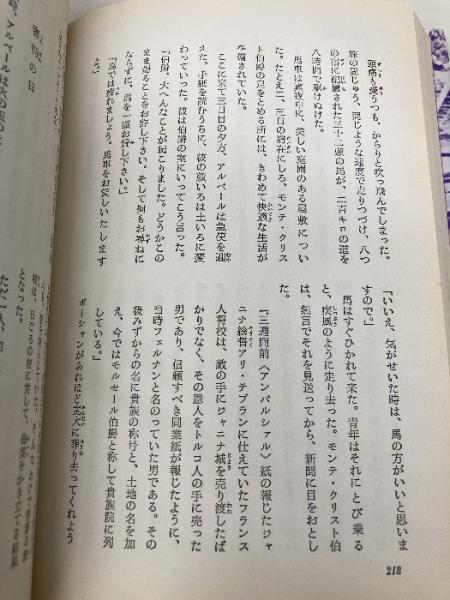 頭痛も憂うつも、からりと吹っ飛んでしまった。
旅の間じゅう、同じような速度で走りつづけ、八つ
の宿に配備された三十二頭の馬が、二百キロの道を
八時間で駆けぬけた。
馬車は真夜中に、美しい庭園のある屋敷につい
た。たとえ二、三日の滞在にしろ、モンテ・クリス
ト伯爵の足をとめる所には、きわめて快適な生活が
準備されていた。
ここに来て三日目の夕方、アルベールは急使を迎
えた。手紙を読むうちに、彼の顔いろは土いろに変
っていった。彼は伯爵の室にいってこう言った。
「伯爵、大へんなことが起こりました。どうかこの
まま帰ることをお許し下さい。そして何もお尋ねに
ならずに、馬を一頭お貸し下さい。」
「馬では疲れましょう。馬車をお貸しいたします
よ。」
「いいえ、気がせいた時は、馬の方がいいと思いま
すので。」
馬はすぐひかれて来た。青年はそれにとび乗る
と、疾風のように走り去った。モンテ・クリスト伯
は、無言でそれを見送ってから、新聞に目をおとし
た。
『三週間前〈アンパルシァル〉紙の報じたジャ
ニナ総督アリ・テブランに仕えていたフランス
人将校は、敵の手にジャニナ城を売り渡したば
かりでなく、その恩人をトルコ人の手に売った
男であり、信頼すべき同業紙が報じたように、
当時フェルナンと名のっていた男である。その
後みずからの名に貴族の称号と、土地の名を加
え、今ではモルセール伯爵と称して貴族院に列
している。』
ボーシャンがあれほど寛大に葬り去ってくれよう
218
の日
となった。